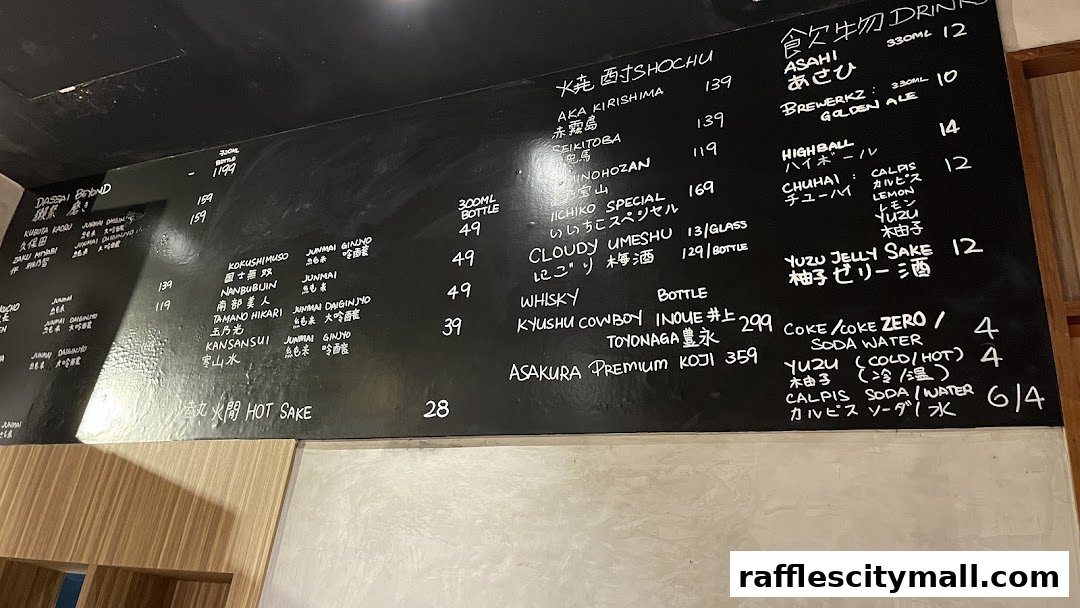 720ML
BOTTLE
DASSAI BEYOND - 1199
KUBOTA KAORU JUNMAI DAIGINJYO 159
久保田 純米 大吟醸
ZAKU MIYABI JUNMAI DAIGINJYO 159
作 雅乃智 純米 大吟醸
JUNMAI 139
純米
JUNMAI DAIGINJYO 119
純米 大吟醸
JUNMAI DAIGINJYO
純米 大吟醸
JUNMAI
純米
300ML
BOTTLE
KOKUSHIMUSO JUNMAI GINJYO 49
国士無双 純米 吟醸
NANBUBIJIN JUNMAI 49
南部美人 純米
TAMANO HIKARI JUNMAI DAIGINJYO 49
玉乃光 純米 大吟醸
KANSANSUI JUNMAI GINJYO 39
寒山水 純米 吟醸
HOT SAKE 28
焼酎 SHOCHU
AKA KIRISHIMA 139
赤霧島
SEIKITOBA 139
鬼馬
INOHOZAN 119
宝山
IICHIKO SPECIAL 169
いいちこスペシャル
CLOUDY UMESHU 13/GLASS
にごり 梅酒 129/BOTTLE
WHISKY BOTTLE
KYUSHU COWBOY INOUE 井上 299
TOYONAGA 豊永
ASAKURA PREMIUM KOJI 359
飲み物 DRINK
ASAHI 330ML 12
あさひ
BREWERKZ: 330ML 10
GOLDEN ALE
HIGHBALL 14
ハイボール
CHUHAI: CALPIS 12
チューハイ カルピス
LEMON
レモン
YUZU
柚子
YUZU JELLY SAKE 12
柚子ゼリー酒
COKE/COKE ZERO/ 4
SODA WATER
YUZU (COLD/HOT) 4
柚子 (冷/温)
CALPIS SODA/WATER 6/4
カルピス ソーダ/水
rafflescitymall.com